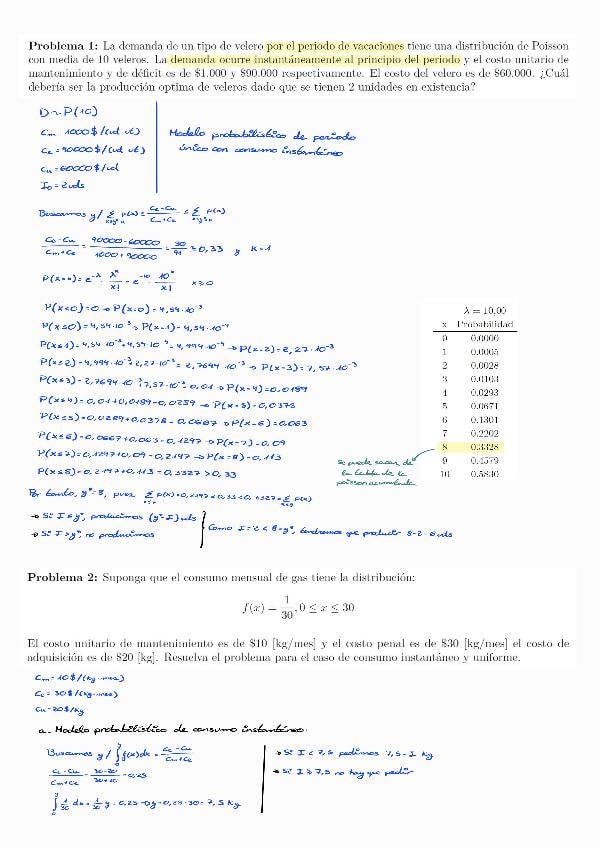 Problema 1: La demanda de un tipo de velero por el periodo de vacaciones tiene una distribución de Poisson
con media de 10 veleros. La demanda ocurre instantáneamente al principio del periodo y el costo unitario de
mantenimiento y de déficit es de $1.000 y $90.000 respectivamente. El costo del velero es de $60.000. ¿Cuál
debería ser la producción optima de veleros dado que se tienen 2 unidades en existencia?
D~P(10)
Cm = 1000$/(ud·ut)
Ce = 90000$/(ud·ut)
Cu = 60000$/ud
I₀ = 2uds
Modelo probabilístico de periodo
único con consumo instantáneo
Buscamos y / Σ p(x) ≤ (Ce-Cu)/(Cm+Ce) ≤ Σ p(x)
(Ce-Cu)/(Cm+Ce) = (90000-60000)/(1000+90000) = 30/91 ≈ 0,33 y K=1
P(x=x) = e^-λ · λ^x/x! = e^-10 · 10^x/x! x≥0
P(x<0)=0 → P(x=0)=4,54·10⁻⁵
P(x≤0)=4,54·10⁻⁵ → P(x=1)=4,54·10⁻⁴
P(x≤1)=4,54·10⁻⁵+4,54·10⁻⁴=4,994·10⁻⁴ → P(x=2)=2,27·10⁻³
P(x≤2)=4,994·10⁻⁴+2,27·10⁻³=2,7694·10⁻³ → P(x=3)=7,57·10⁻³
P(x≤3)=2,7694·10⁻³+7,57·10⁻³=0,01 → P(x=4)=0,0189
P(x≤4)=0,01+0,0189=0,0289 → P(x=5)=0,0378
P(x≤5)=0,0289+0,0378=0,0667 → P(x=6)=0,063
P(x≤6)=0,0667+0,063=0,1297 → P(x=7)=0,09
P(x≤7)=0,1297+0,09=0,2197 → P(x=8)=0,113
P(x≤8)=0,2197+0,113=0,3327>0,33
λ = 10,00
x Probabilidad
0 0.0000
1 0.0005
2 0.0028
3 0.0103
4 0.0293
5 0.0671
6 0.1301
7 0.2202
8 0.3328
9 0.4579
10 0.5830
se puede sacar de
la tabla de la
poisson acumulada
Por tanto, y*=8, pues Σ p(x)=0,2197<0,33<0,3327=Σ p(x)
→ Si I≤y*, producimos (y*-I) uds
→ Si I>y*, no producimos
Como I=2<8=y*, tendremos que producir 8-2=6 uds
Problema 2: Suponga que el consumo mensual de gas tiene la distribución:
f(x) = 1/30, 0 ≤ x ≤ 30
El costo unitario de mantenimiento es de $10 [kg/mes] y el costo penal es de $30 [kg/mes] el costo de
adquisición es de $20 [kg]. Resuelva el problema para el caso de consumo instantáneo y uniforme.
Cm = 10$/(kg·mes)
Ce = 30$/(kg·mes)
Cu = 20$/kg
a.- Modelo probabilístico de consumo instantáneo:
Buscamos y / ∫₀^y f(x)dx = (Ce-Cu)/(Cm+Ce)
(Ce-Cu)/(Cm+Ce) = (30-20)/(30+10) = 0,25
∫₀^y 1/30 dx = 1/30 y = 0,25 → y = 0,25·30 = 7,5 Kg
→ Si I < 7,5 pedimos 7,5-I Kg
→ Si I ≥ 7,5 no hay que pedir